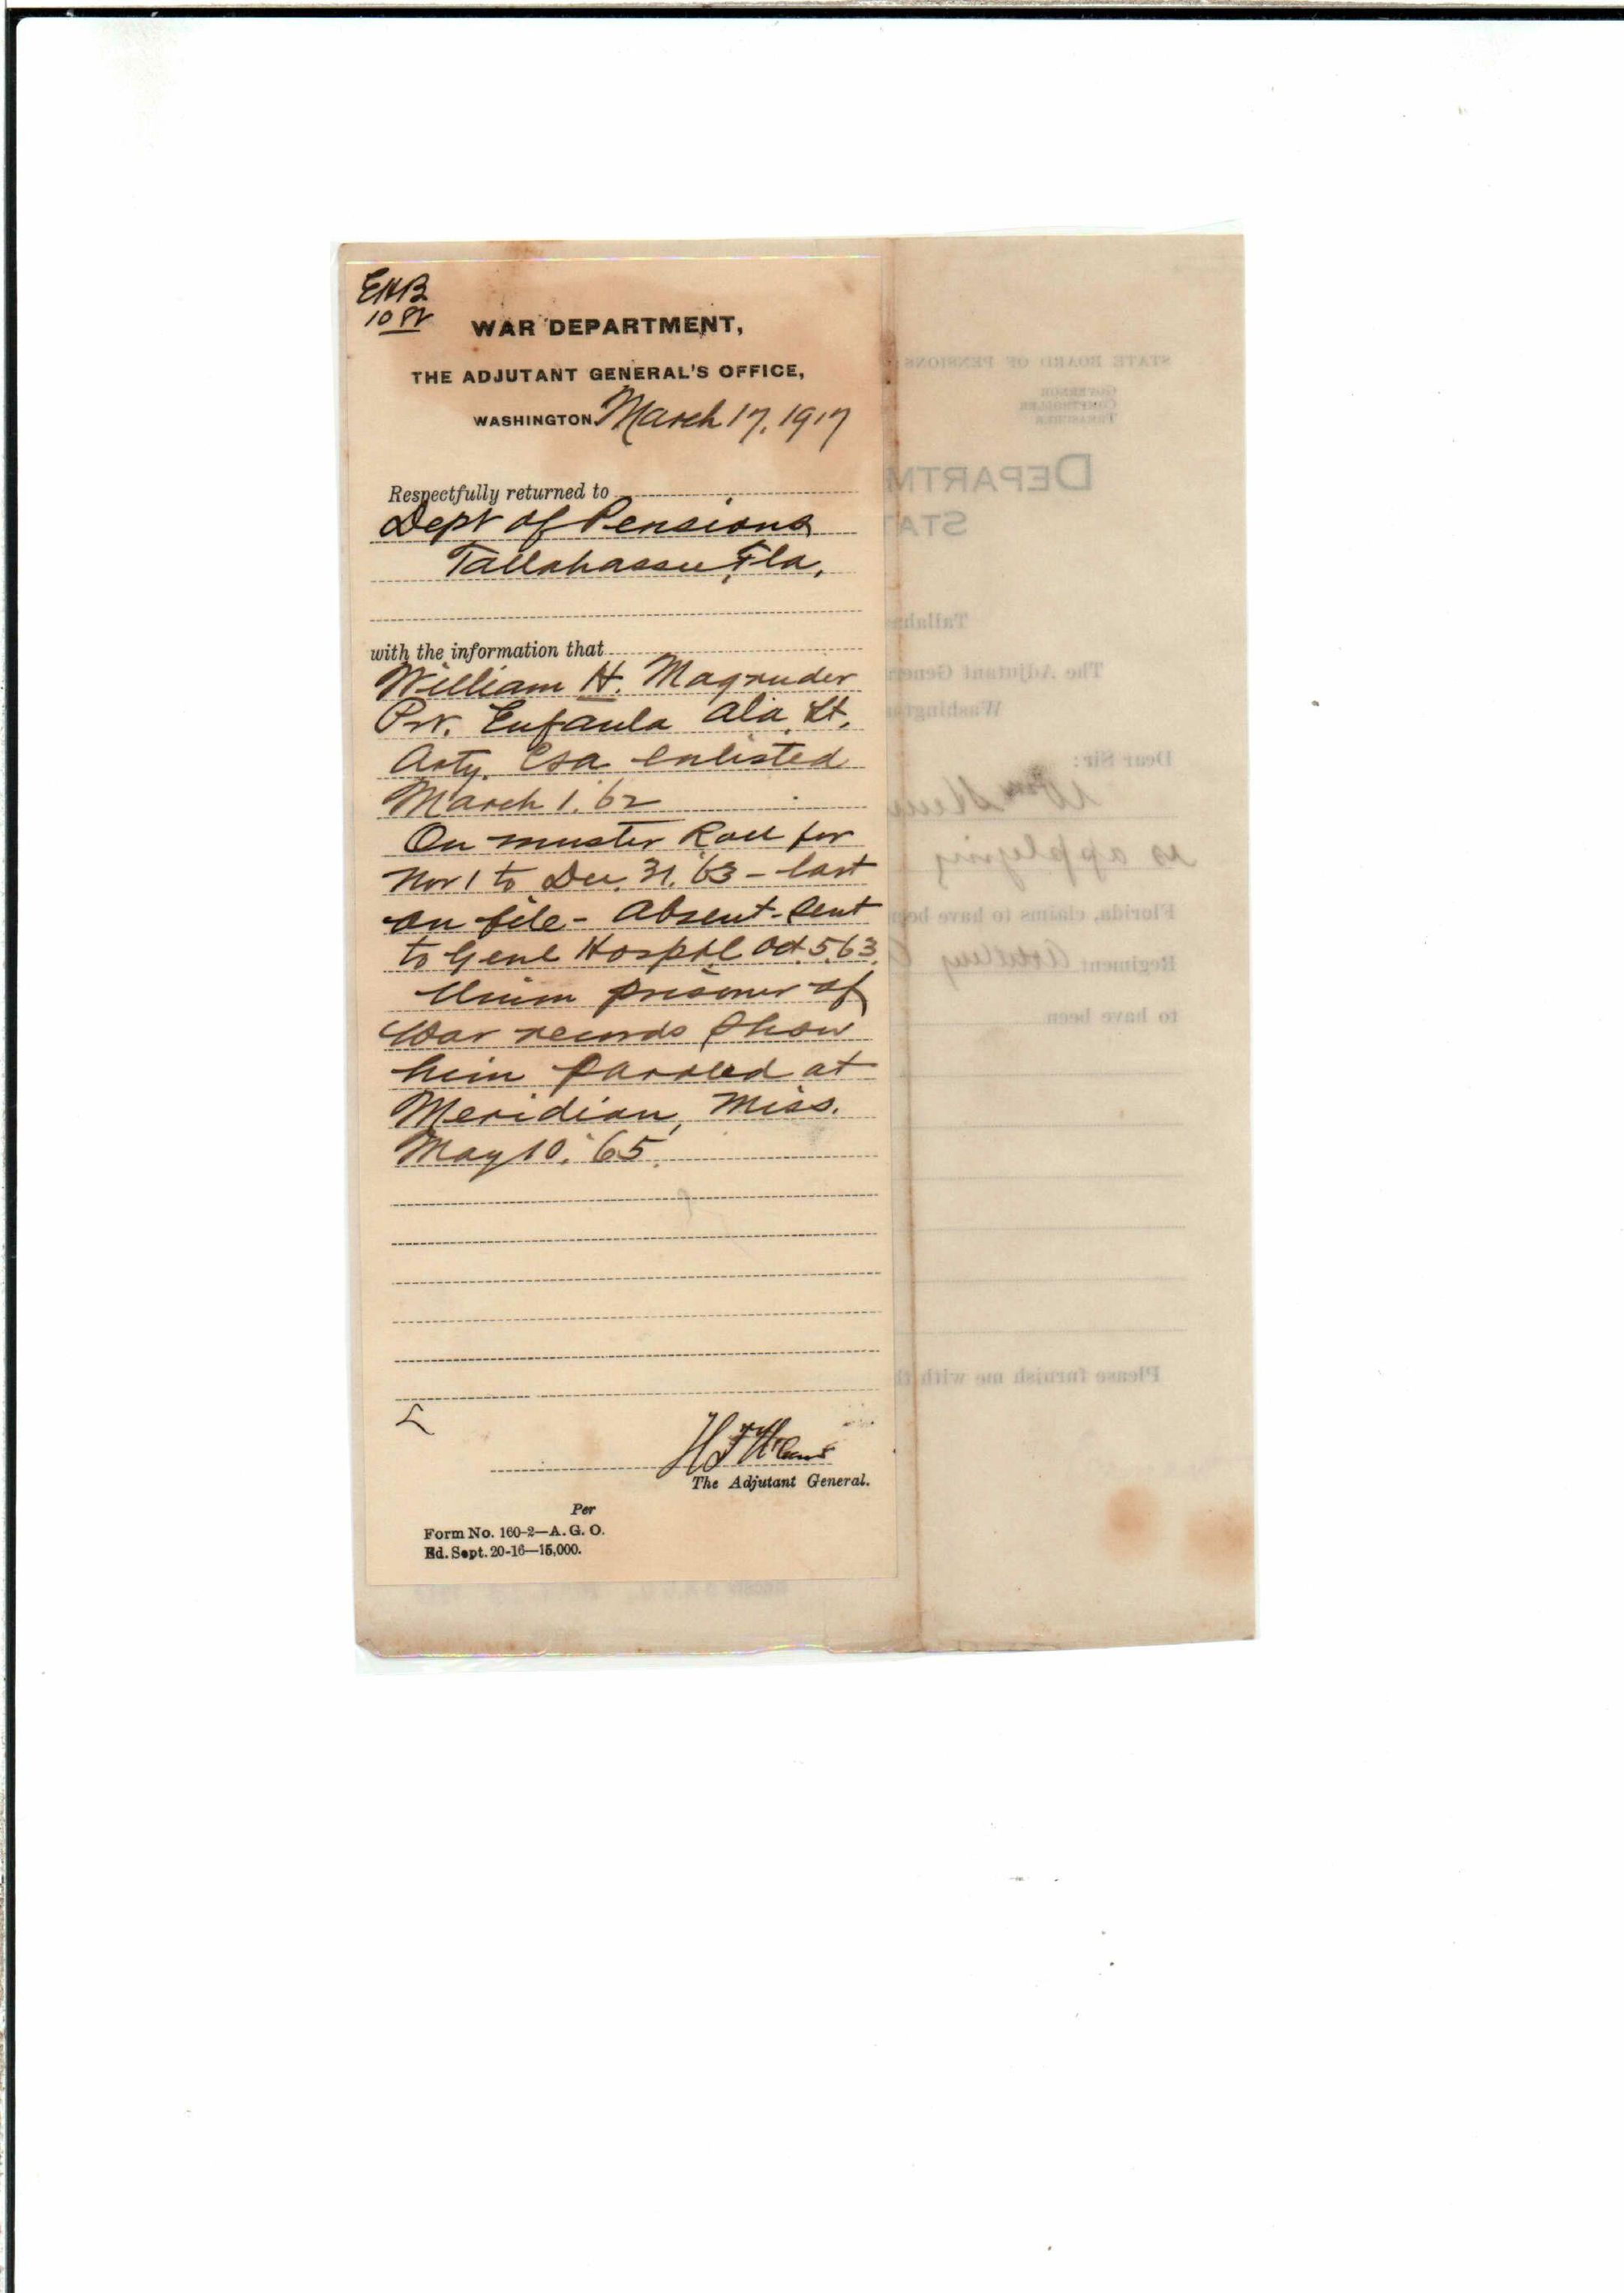 EHB
10
WAR DEPARTMENT,
THE ADJUTANT GENERAL'S OFFICE,
WASHINGTON March 17, 1917
Respectfully returned to
Dept of Pensions
Tallahassee, Fla,
with the information that
William H. Magruder
Pvt. Eufaula Ala Lt.
Arty. Csa enlisted
March 1, '62
On muster Roll for
Nov 1 to Dec. 31, '63 - last
on file - Absent - Sent
to Genl Hosptl Oct. 5, 63.
Union prisoner of
War records show
him paroled at
Meridian, Miss.
May 10, '65.
The Adjutant General.
Per
Form No. 160-2—A. G. O.
Ed. Sept. 20-16—15,000.
STATE BOARD OF PENSIONS
GOVERNOR
COMPTROLLER
TREASURER
DEPARTM
STAT
Tallaha
The Adjutant Gener
Washington
Dear Sir:
Wm
is applying
Florida, claims to have be
Regiment Artillery
to have been
Please furnish me with th